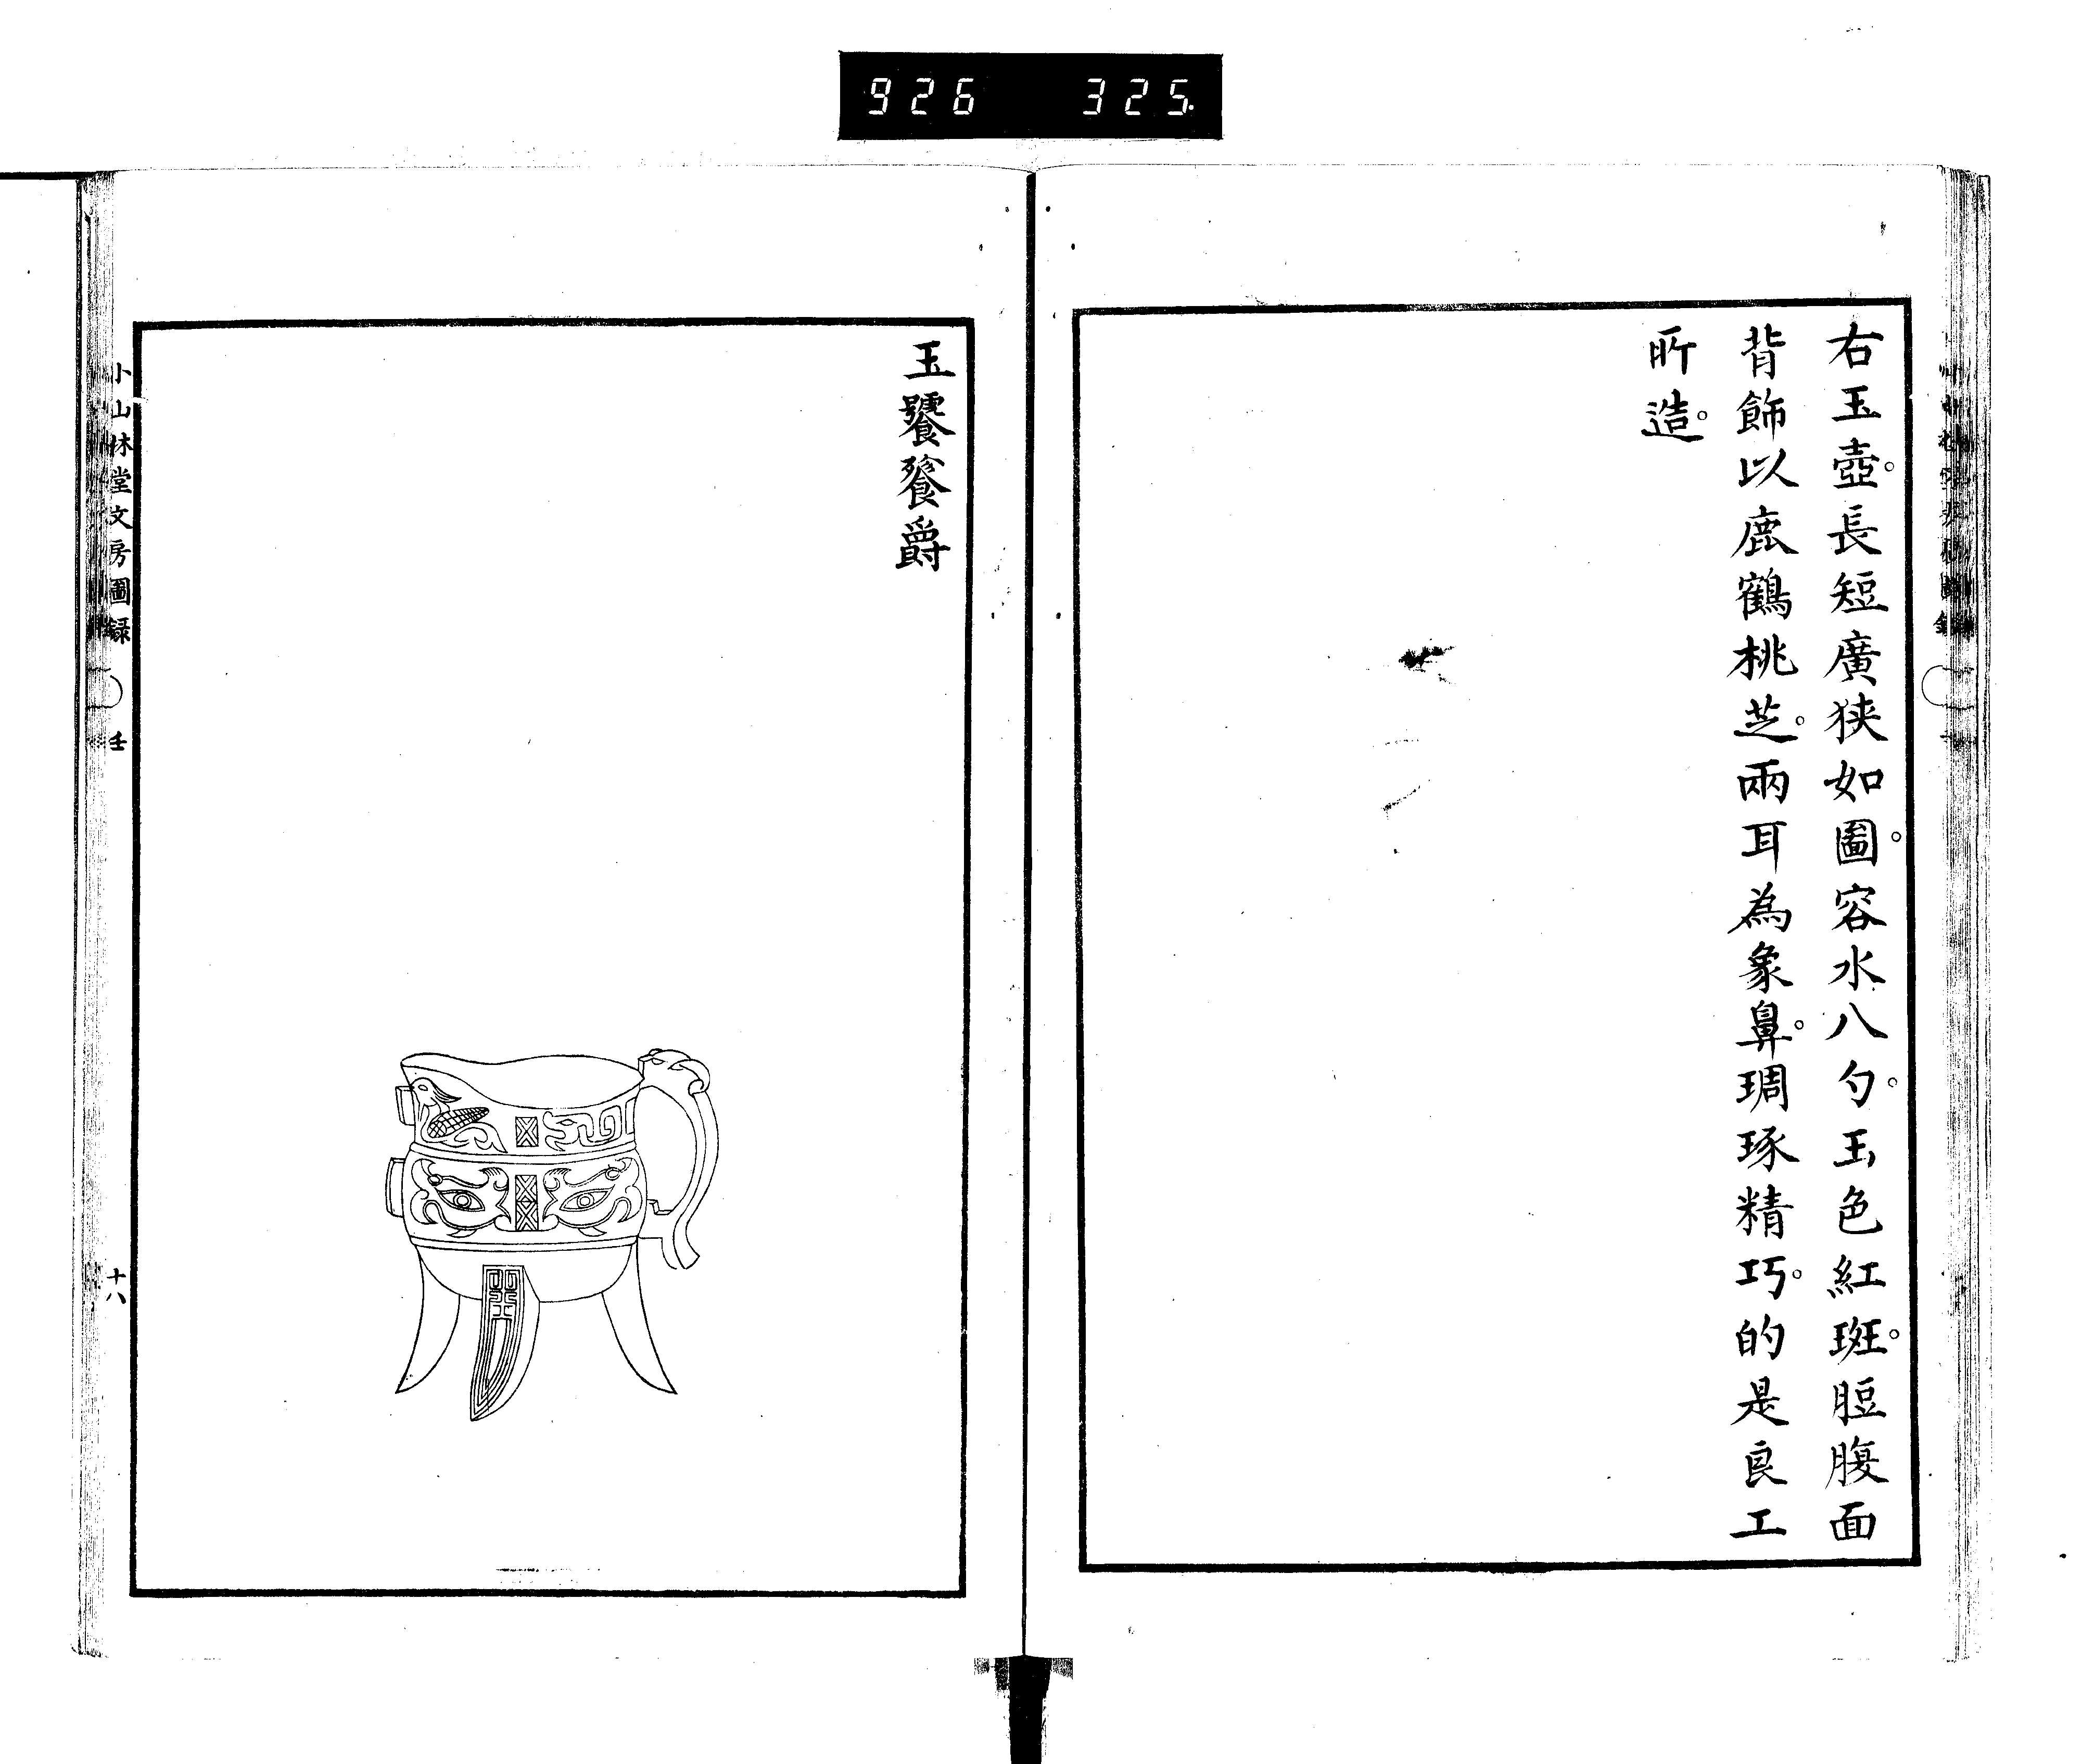 926 325.
右玉壺。長短廣狹如圖。容水八勺。玉色紅斑。脰腹面
背飾以鹿鶴桃芝。兩耳為象鼻。琱琢精巧。的是良工
所造。
玉饕餮爵
小山林堂文房圖録 壬 十八